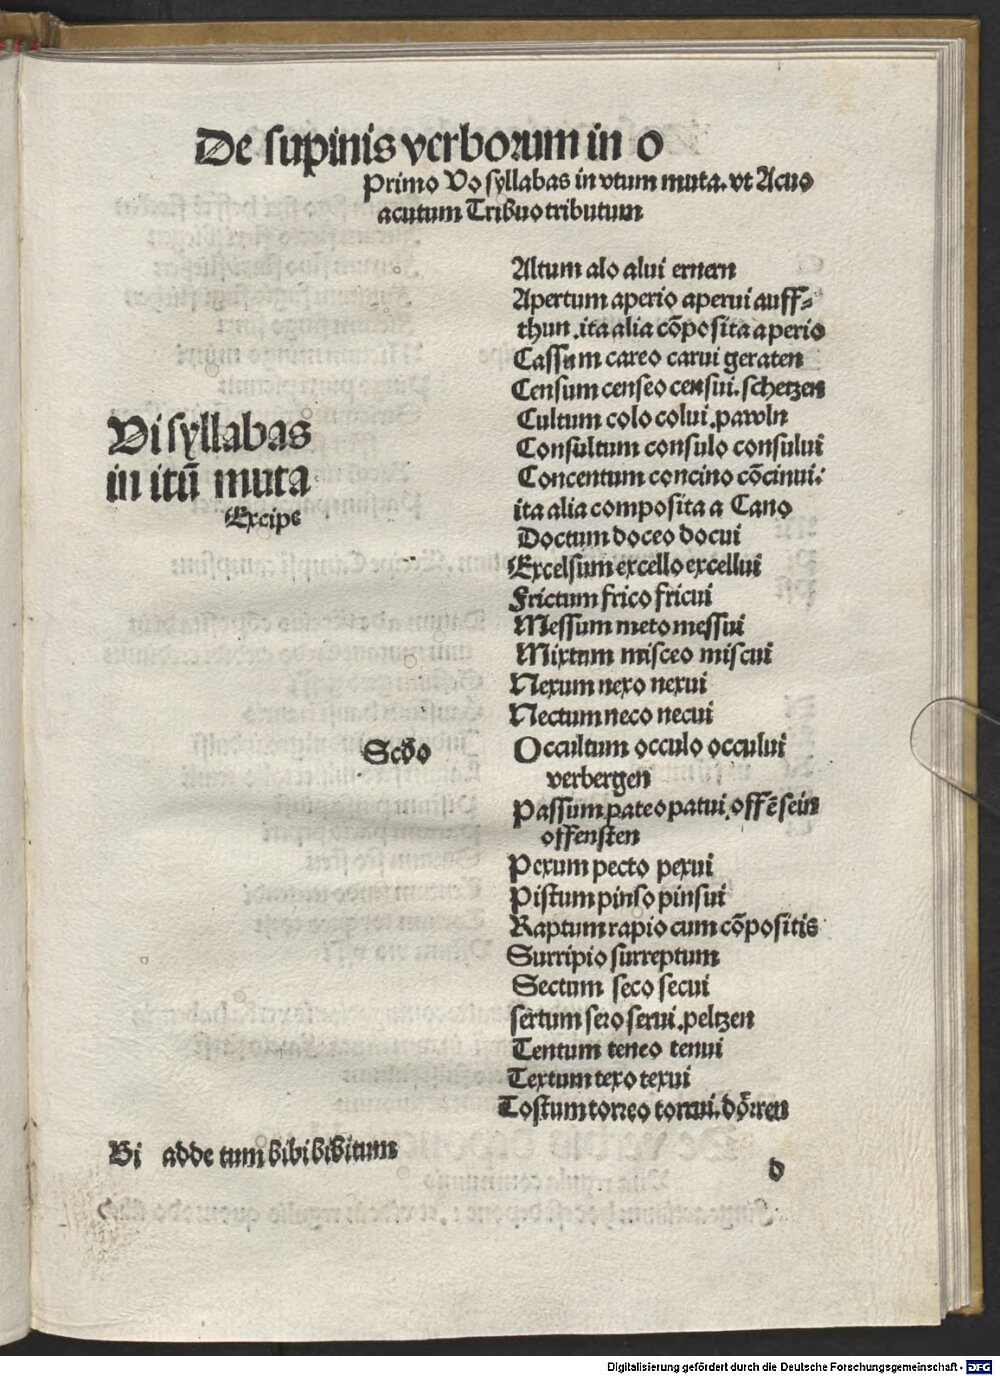 De supinis verborum in o
Primo Vo syllabas in vtum muta. vt Acuo
acutum Tribuo tributum
Altum alo alui ernern
Apertum aperio aperui auff-
thun. ita alia cōposita aperio
Cassum careo carui geraten
Censum censeo censui. schetzen
Cultum colo colui. pawln
Consultum consulo consului
Concentum concino cōcinui:
ita alia composita a Cano
Vi syllabas
in itū muta
Excipe
Doctum doceo docui
Excelsum excello excellui
Frictum frico fricui
Messum meto messui
Mixtum misceo miscui
Nexum nexo nexui
Nectum neco necui
Scdo
Occultum occulo occului
verbergen
Passum pateo patui. offē sein
offensten
Pexum pecto pexui
Pistum pinso pinsui
Raptum rapio cum cōpositis
Surripio surreptum
Sectum seco secui
sertum sero serui. peltzen
Tentum teneo tenui
Textum texo texui
Tostum torreo torrui. dörren
Bi adde tum bibi bibitum
d
Digitalisierung gefördert durch die Deutsche Forschungsgemeinschaft - DFG